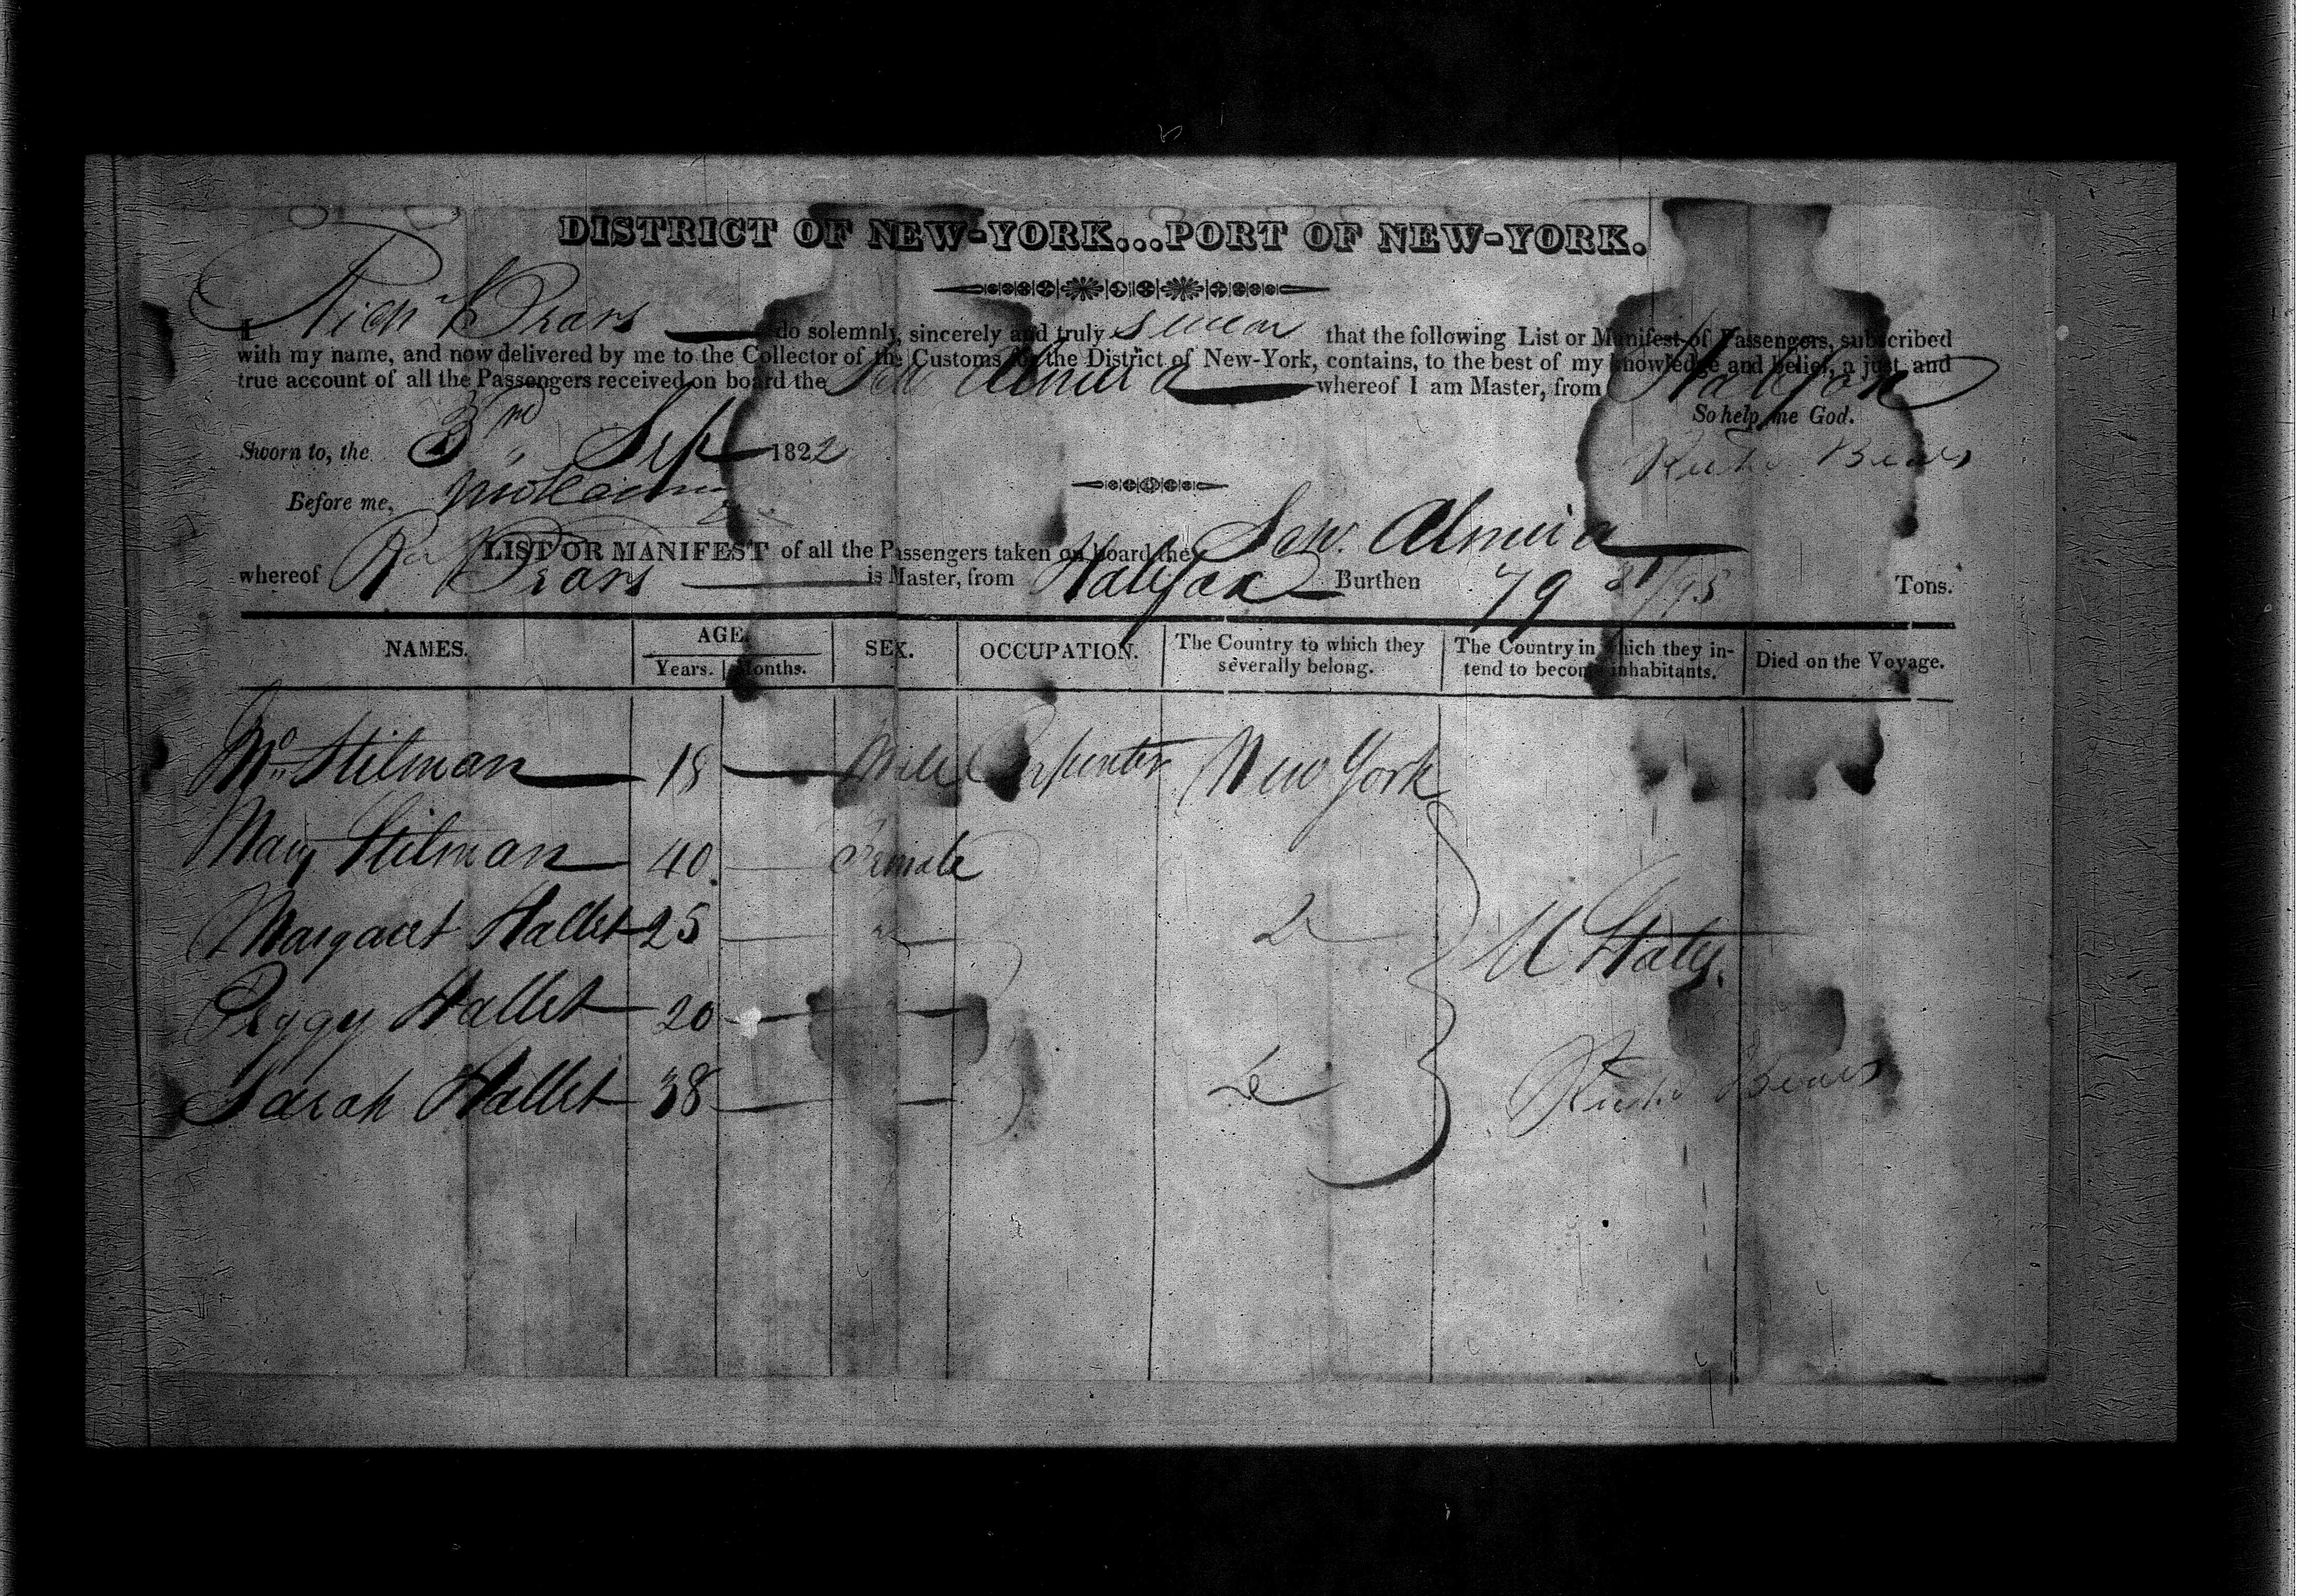 DISTRICT OF NEW-YORK...PORT OF NEW-YORK.
I Rich'd Bears do solemnly, sincerely and truly swear that the following List or Manifest of Passengers, subscribed
with my name, and now delivered by me to the Collector of the Customs for the District of New-York, contains, to the best of my knowledge and belief, a just and
true account of all the Passengers received on board the Almira whereof I am Master, from Halifax
So help me God.
Sworn to, the 3rd Sep 1822
Bears
Before me,
LIST OR MANIFEST of all the Passengers taken on board the Schr. Almira
whereof Bears is Master, from Halifax Burthen 79 /95 Tons.
NAMES. AGE. SEX. OCCUPATION. The Country to which they severally belong. The Country in which they intend to become inhabitants. Died on the Voyage.
Years. Months.
Stilman 18 Male Carpenter New York
Mary Stilman 40 Female
Margaret Hallet 25 "
U States.
Peggy Hallet 20
Sarah Hallet 38
Bears